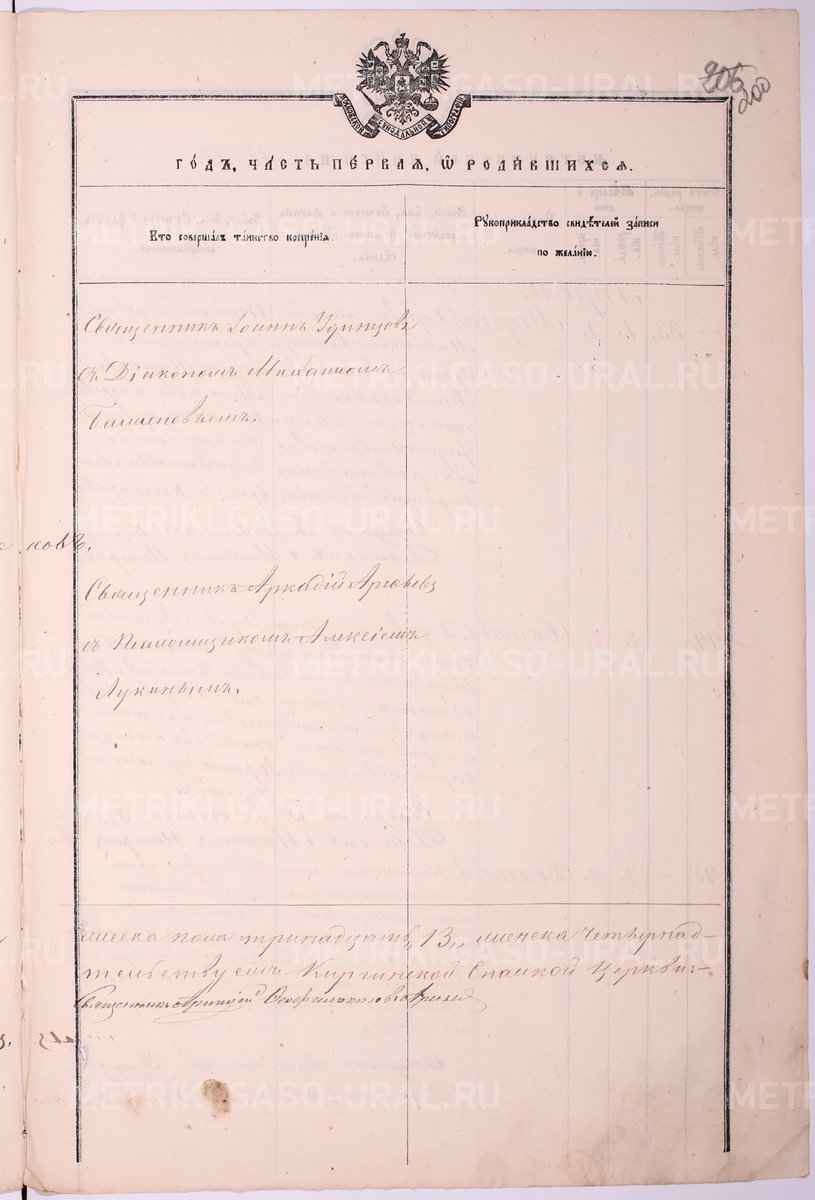 206
200
МОСКОВСКОЙ СѴНОДАЛЬНОЙ ТИПОГРАФІИ
ГОДЪ, ЧАСТЬ ПЕРВАЯ, Ѡ РОДИВШИХСЯ.
Кто совершалъ таинство крещенія.
Рукоприкладство свидѣтелей записи
по желанію.
Священникъ Іоаннъ Удинцовъ
съ Діакономъ Михаиломъ
новъ.
Священникъ Аркадій Арефьевъ
съ Псаломщикомъ Алексіемъ
Лукинымъ.
мужеска пола тринадцать „13„ женска четырнад–
тельствуемъ Киргинской Спасской Церкви:–
Священникъ
METRIKI.GASO-URAL.RU